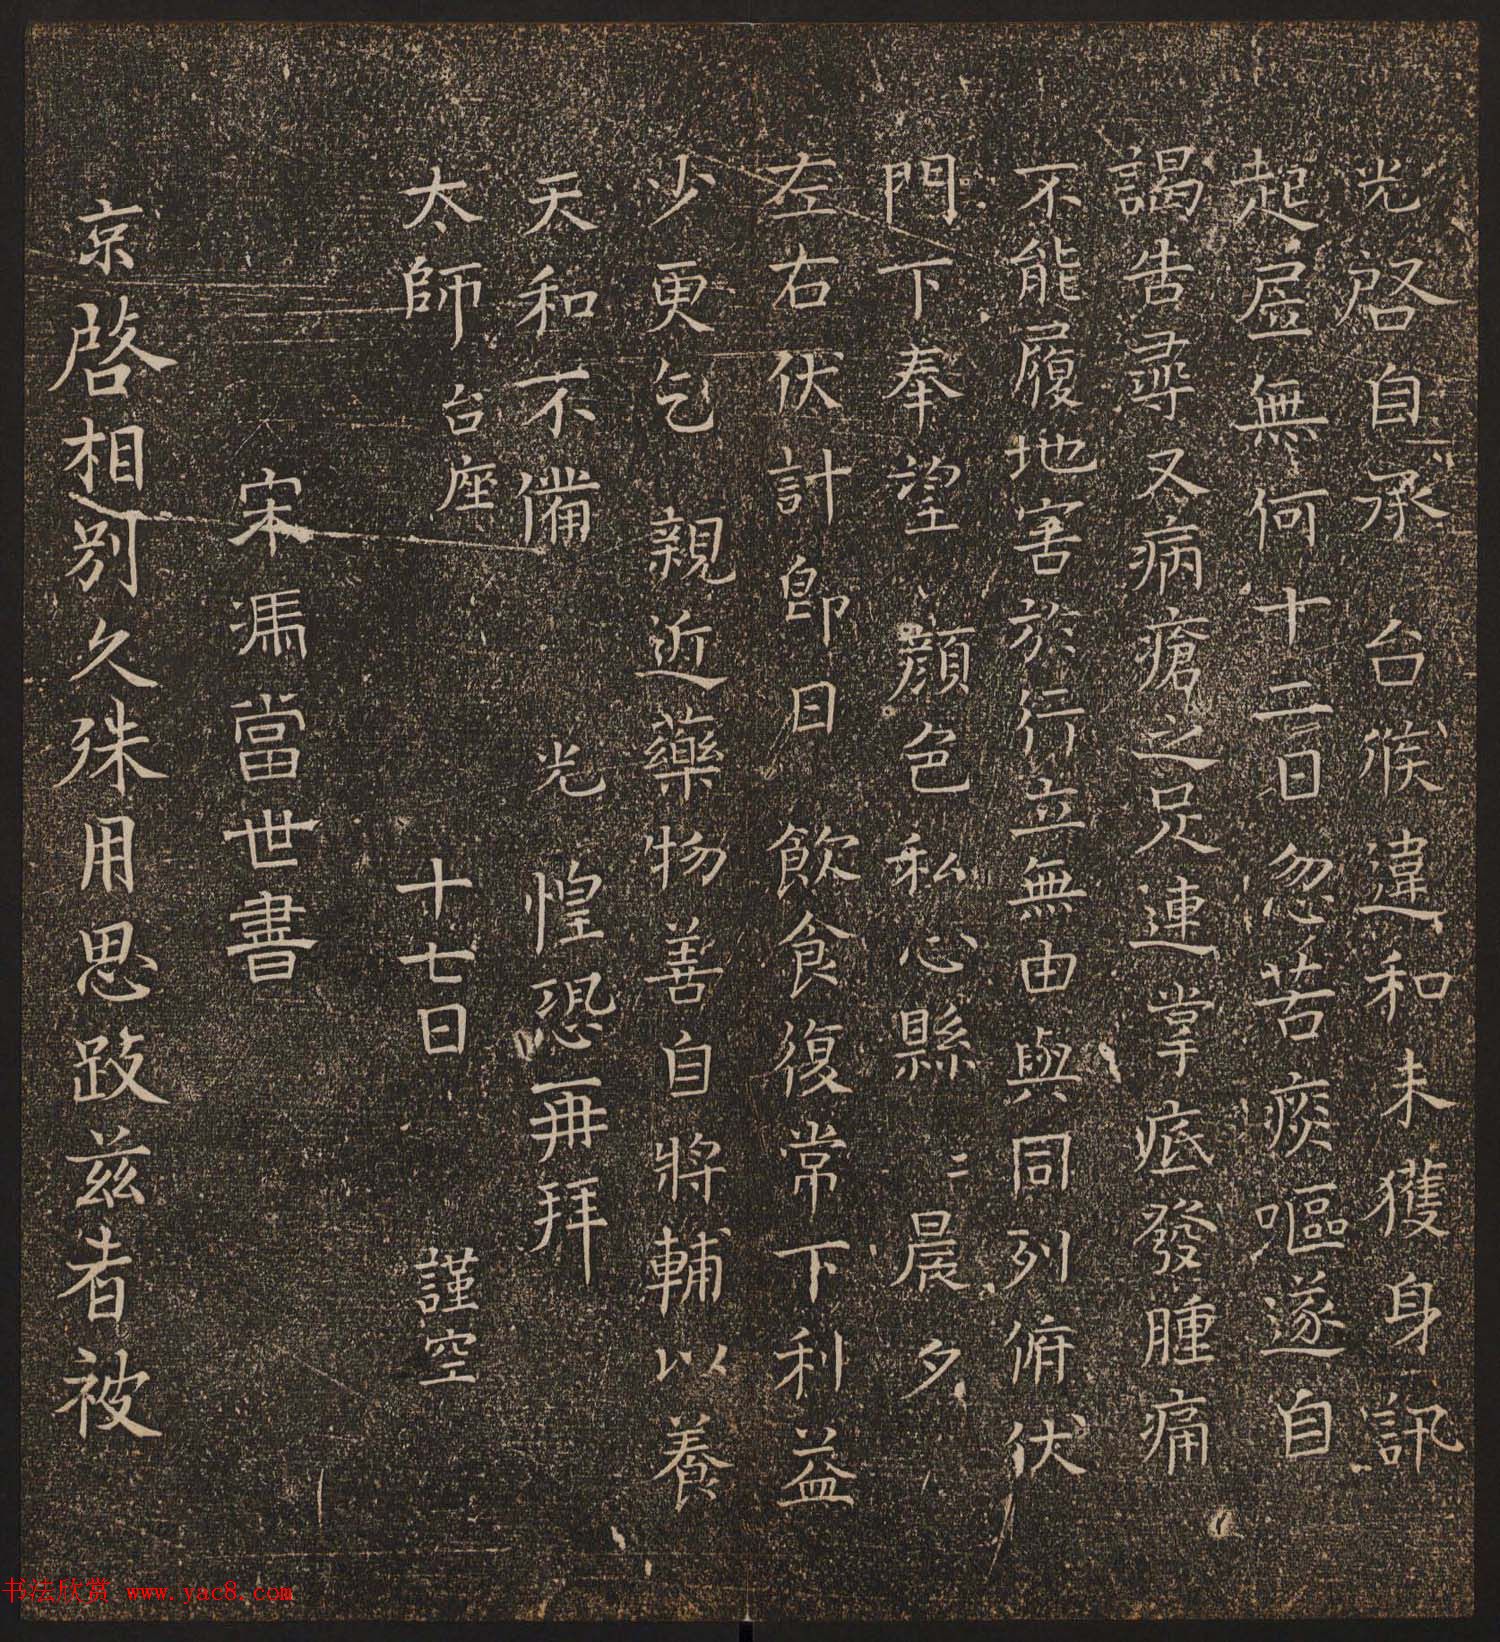 光啓自承台候違和未獲身訊
起虛無何十二日忽苦痰嘔遂自
謁告尋又病瘡之足連掌底發腫痛
不能履地害於行立無由與同列俯伏
門下奉望顏色私心縣〻晨夕
左右伏計即日飲食復常下利益
少更乞親近藥物善自將輔以養
天和不備光惶恐再拜
太師台座十七日謹空
宋馮當世書
京啓相別久殊用思跂茲者被
书法欣赏 www.yac8.com